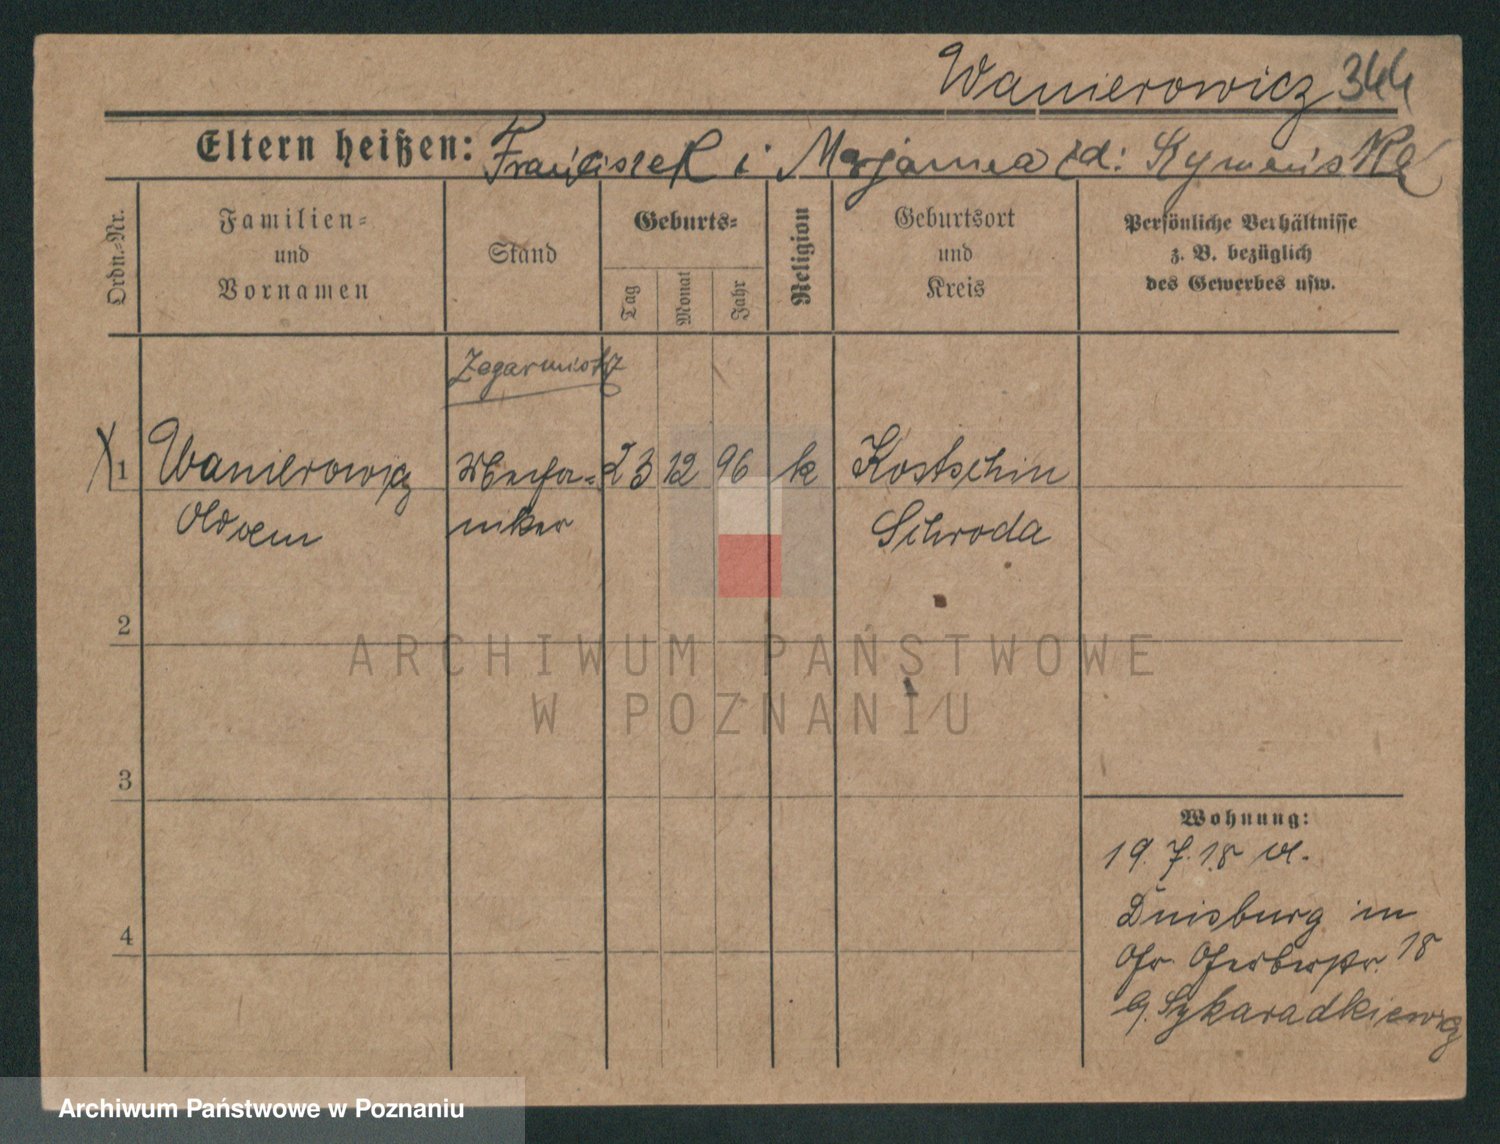 Wanierowicz 344
Eltern heißen: Franciszek i Marjanna zd:
Ordn.-Nr.
Familien-
und
Vornamen
Stand
Geburts-
Tag
Monat
Jahr
Religion
Geburtsort
und
Kreis
Persönliche Verhältnisse
z. B. bezüglich
des Gewerbes usw.
Zegarmistrz
1 Wanierowicz Mecha- 23 12 96 k Kostschin
Adam niker Schroda
2
3
4
Wohnung:
19. 7. 18 A.
Duisburg in
Gr. Gerberstr. 18
b. Szkaradkiewicz
ARCHIWUM PAŃSTWOWE
W POZNANIU
Archiwum Państwowe w Poznaniu